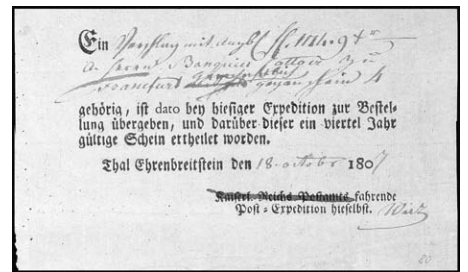 Ein Verschlag mit angbl. fl. 1114. 9 xr
a. Herrn Banquier
Francfurt gegen schein
gehörig, iſt dato bey hieſiger Expedition zur Beſtel-
lung übergeben, und darüber dieſer ein viertel Jahr
gültige Schein ertheilet worden.
Thal Ehrenbreitſtein den 18. octobr 1807
Kaiſerl. Reichs-Poſtamts-fahrende
Poſt-Expedition hieſelbſt.
20